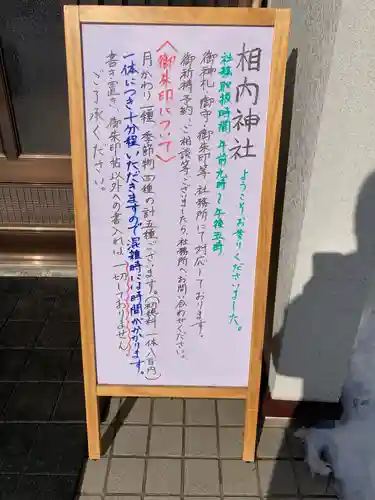 相内神社
ようこそお参りくださいました。
社務取扱時間 午前九時～午後五時
御神札・御守・御朱印等、社務所にて対応しております。
御祈祷予約、ご相談等ございましたら、社務所へお問い合わせください。
〈御朱印について〉
月かわり一種 季節物四種の計五種ございます。(初穂料 一体八百円)
一体につき十分程いただきますので混雑時には時間がかかります。
書き置き、御朱印帖以外への書入れは一切しておりません。
ご了承ください。